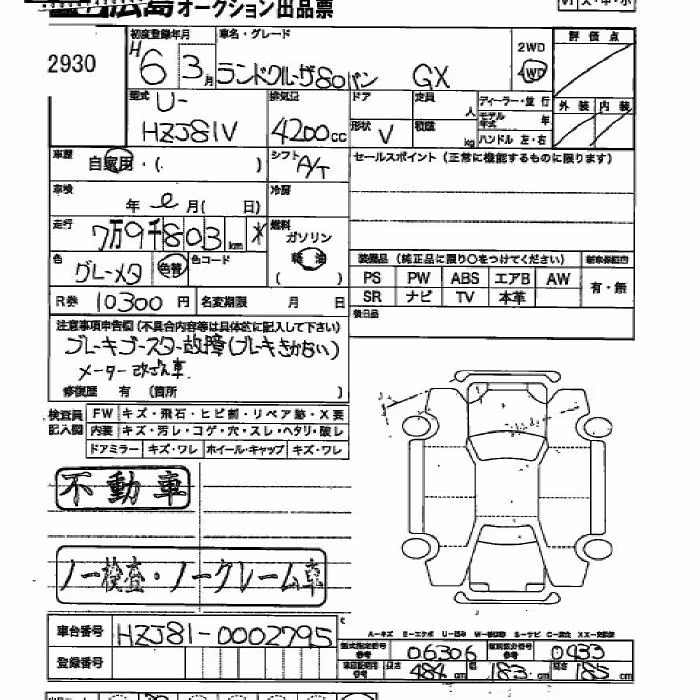 広島オークション出品票
2930
初度登録年月 H 6 3月
車名・グレード ランドクルーザ80バン GX
2WD
4WD
評価点
型式 U-
HZJ81V
排気量 4200cc
ドア
定員 人
ディーラー・並行
モデル年式 年
ハンドル 左・右
外装 内装
形状 V
積載 kg
車歴 自家用・( )
シフト A/T
セールスポイント(正常に機能するものに限ります)
車検 年 月( 日)
冷房
走行 7万9千803km *
燃料 ガソリン
軽油
( )
色 グレーメタ 色替
色コード
装備品(純正品に限り○をつけてください)
新車保証書
PS PW ABS エアB AW
有・無
SR ナビ TV 本革
R券 10300円
名変期限 月 日
後日品
注意事項申告欄(不具合内容等は具体的に記入して下さい)
ブレーキブースター故障(ブレーキきかない)
メーター改ざん車
修復歴 有 (箇所 )
検査員記入欄
FW キズ・飛石・ヒビ割・リペア跡・X要
内装 キズ・汚レ・コゲ・穴・スレ・ヘタリ・酸レ
ドアミラー キズ・ワレ ホイール・キャップ キズ・ワレ
不動車
ノー検査・ノークレーム車
車台番号 HZJ81-0002795
登録番号
型式指定番号 参考 06306
類別区分番号 参考 0433
長さ 484cm 幅 183cm 高さ 185cm